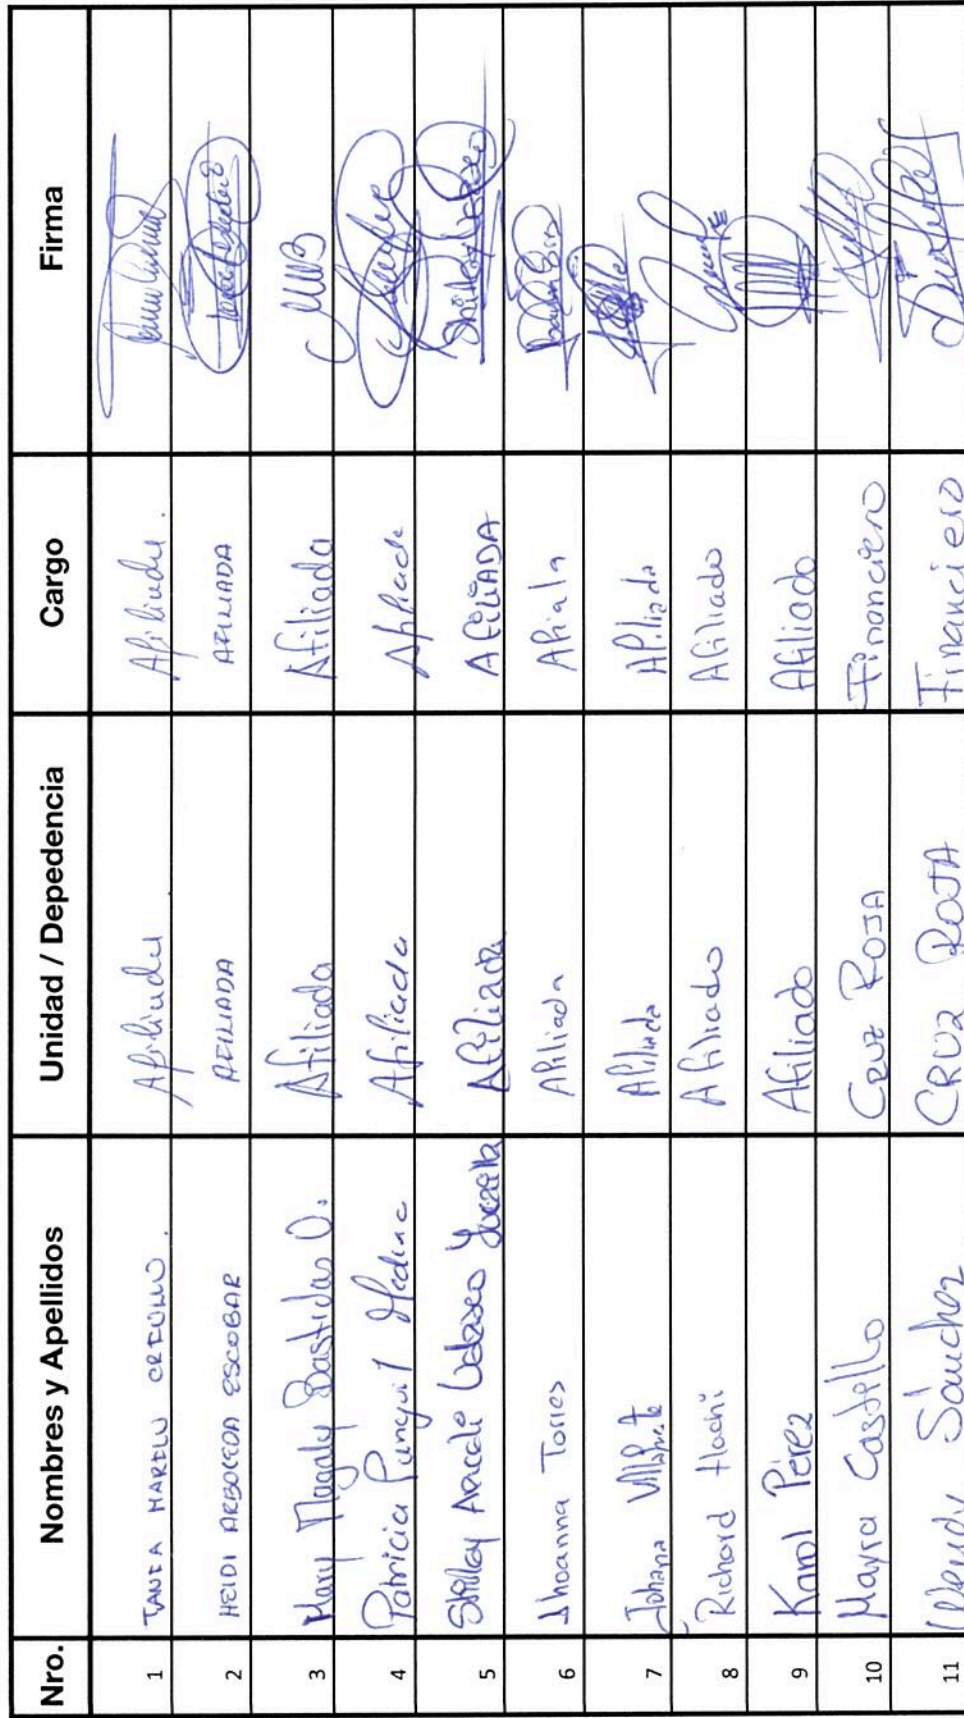 Nro. Nombres y Apellidos Unidad / Depedencia Cargo Firma
1 TANIA MARILU CRIOLLO. Afiliada Afiliada.
2 HEIDI ARBOLEDA ESCOBAR AFILIADA AFILIADA
3 Mary Magaly Bastidas O. Afiliada Afiliada
4 Patricia Punguil Medina Afiliada Afiliada
5 Shirley Araceli Velasco Afiliada AFILIADA
6 Jhoanna Torres Afiliada Afiliada
7 Johana Villafuerte Afiliada Afiliada
8 Richard Afiliado Afiliado
9 Karol Pérez Afiliado Afiliado
10 Mayra Castillo CRUZ ROJA Financiero
11 Wendy Sánchez CRUZ ROJA Financiero